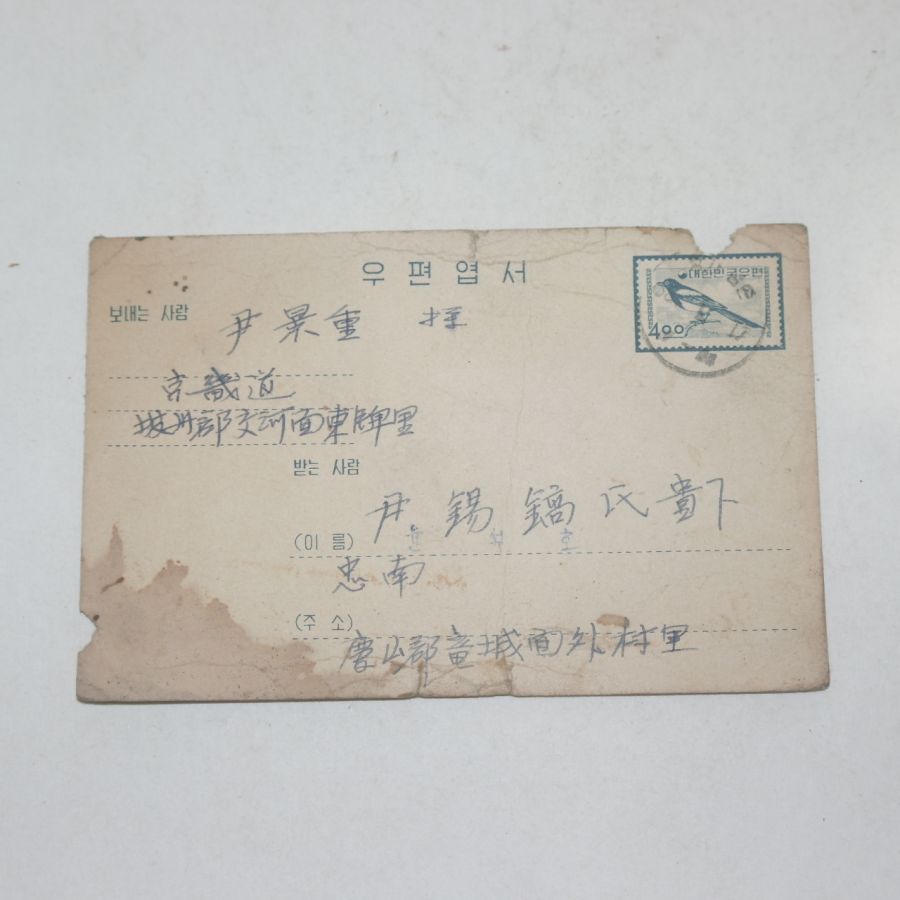 우편엽서
대한민국우편
400
보내는 사람
尹景重 拜
京畿道
坡州郡交河面東牌里
받는 사람
(이 름) 尹錫鎬氏貴下
윤 석 호
忠南
(주 소)
唐山郡竜城面外村里